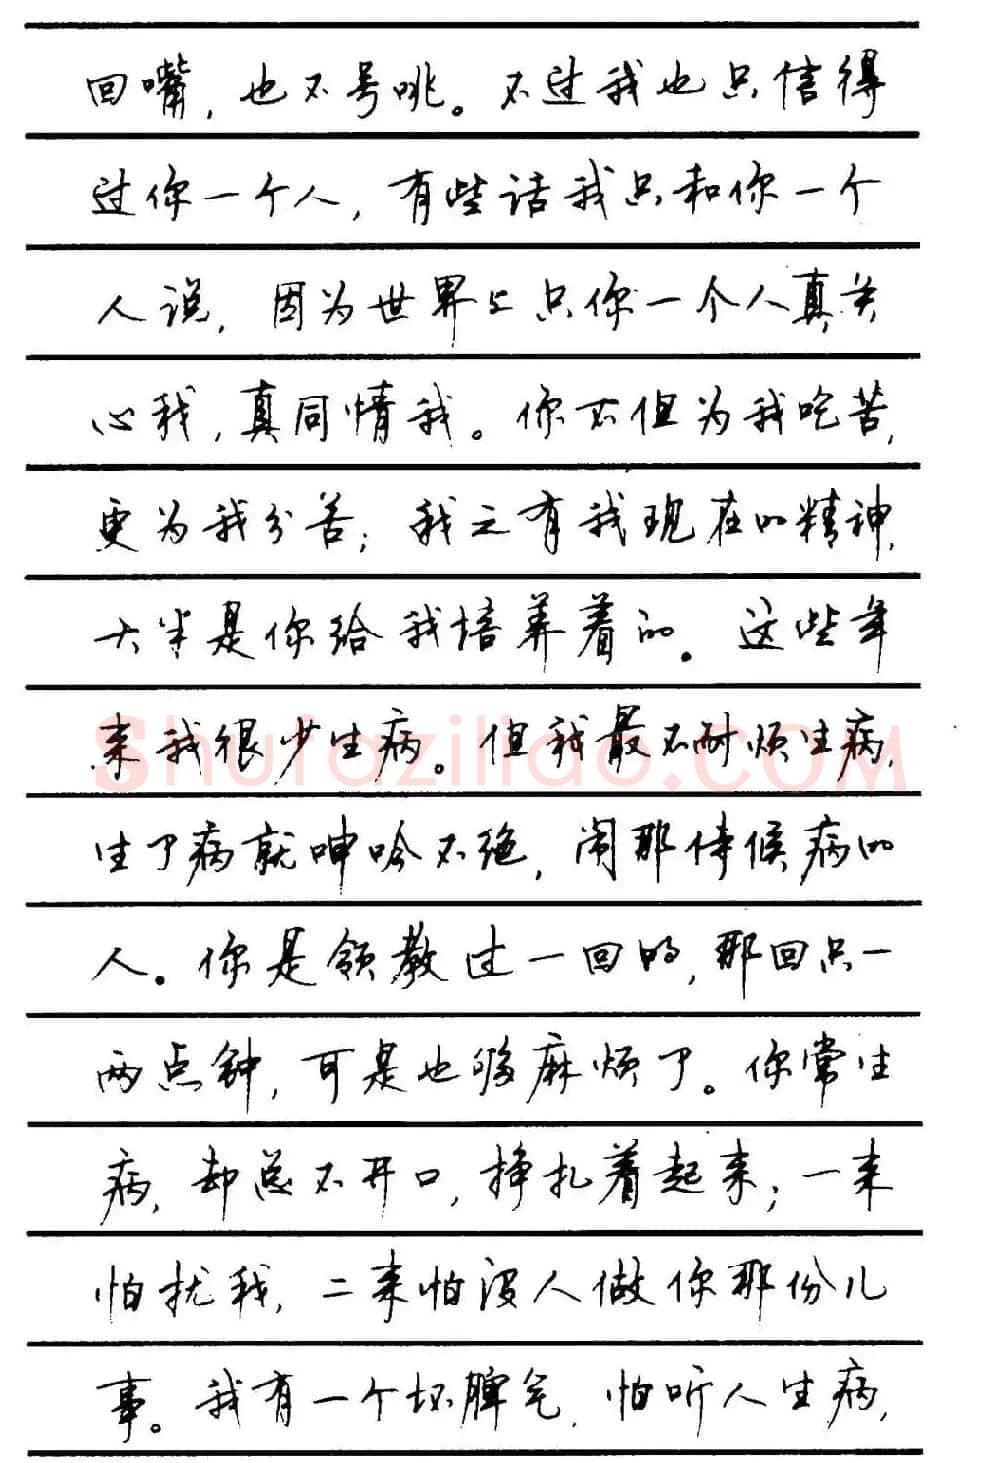 回嘴，也不号咷。不过我也只信得
过你一个人，有些话我只和你一个
人说，因为世界上只你一个人真关
心我，真同情我。你不但为我吃苦，
更为我分苦；我之有我现在的精神，
大半是你给我培养着的。这些年
来我很少生病。但我最不耐烦生病，
生了病就呻吟不绝，闹那侍候病的
人。你是领教过一回的，那回只一
两点钟，可是也够麻烦了。你常生
病，却总不开口，挣扎着起来；一来
怕扰我，二来怕没人做你那份儿
事。我有一个坏脾气，怕听人生病，
shufaziliao.COM